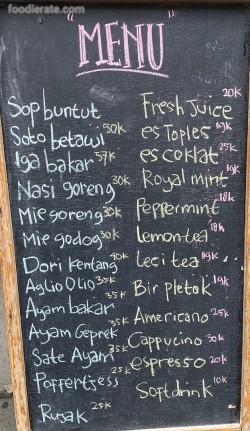 foodierate.com
"MENU"
Sop buntut
Soto betawi 50k
Iga bakar 57k
Nasi goreng 30k
Mie goreng 30k
Mie godog 30k
Dori kentang 40k
Aglio Olio 35k
Ayam bakar 35k
Ayam Geprek 35k
Sate Ayam 35k
Poffertjess 25k
Rujak 25k
Fresh Juice 20k
es Toples 19k
es coklat 25k
Royal mint 19k
Peppermint 18k
Lemon tea 18k
Leci tea 19k
Bir pletok 19k
Americano 25k
Cappucino 30k
espresso 20k
Softdrink 10k